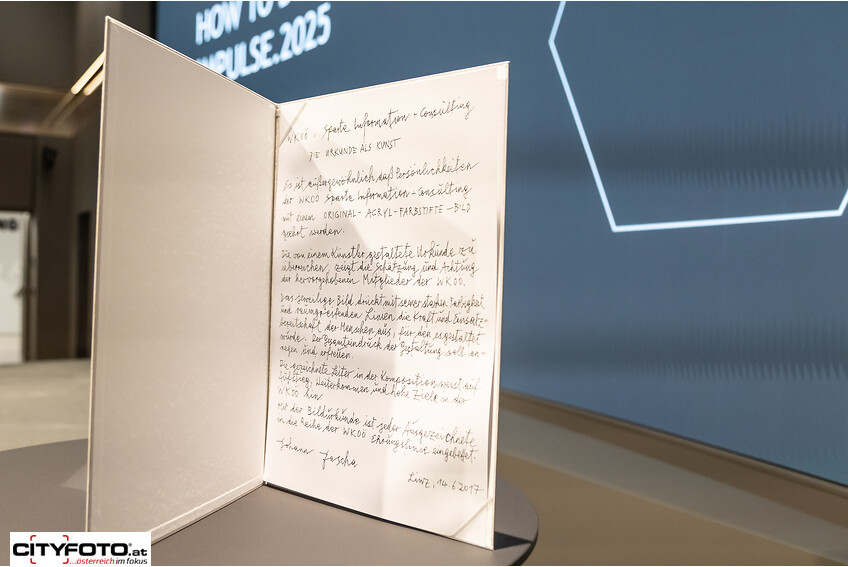 HOW TO
IMPULSE.2025
WKOÖ, Sparte Information + Consulting
DIE URKUNDE ALS KUNST
So ist, außergewöhnlich daß Persönlichkeiten
der WKOÖ Sparte Information + Consulting
mit einem ORIGINAL-ACRYL-FARBSTIFTE-BILD
geehrt werden.
Die von einem Künstler gestaltete Urkunde zu
überreichen, zeigt die Schätzung und Achtung
der hervorgehobenen Mitglieder der WKOÖ.
Das jeweilige Bild drückt mit seiner starken Farbigkeit
und raumgreifenden Linien die Kraft und Einsatz-
bereitschaft der Menschen aus, für den es gestaltet
wurde. Der Gesamteindruck der Gestaltung soll an-
regen und erfreuen.
Die gezeichnete Leiter in der Komposition weist auf
Aufstieg, Weiterkommen und hohe Ziele in der
WKOÖ hin
Mit der Bildurkunde ist jeder Ausgezeichnete
in die Reihe der WKOÖ Ehrungslinie eingebettet.
Johann Jascha
Linz, 14.6.2017
CITYFOTO.at
...österreich im fokus